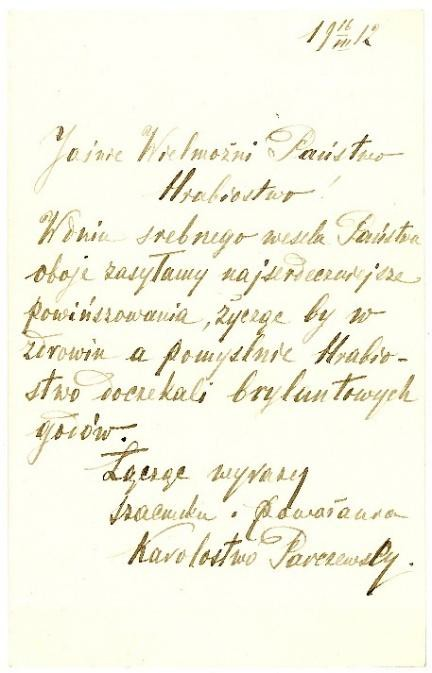 19 16/III 12
Jaśnie Wielmożni Państwo
Hrabiostwo!
W dniu srebnego wesela Państwa
oboje zasyłamy najserdeczniejsze
powińszowania, życząc by w
zdrowiu a pomyślnie Hrabio-
stwo doczekali bryluntowych
godów.
Łącząc wyrazy
szacunku i poważania
Karolostwo Parczewscy.